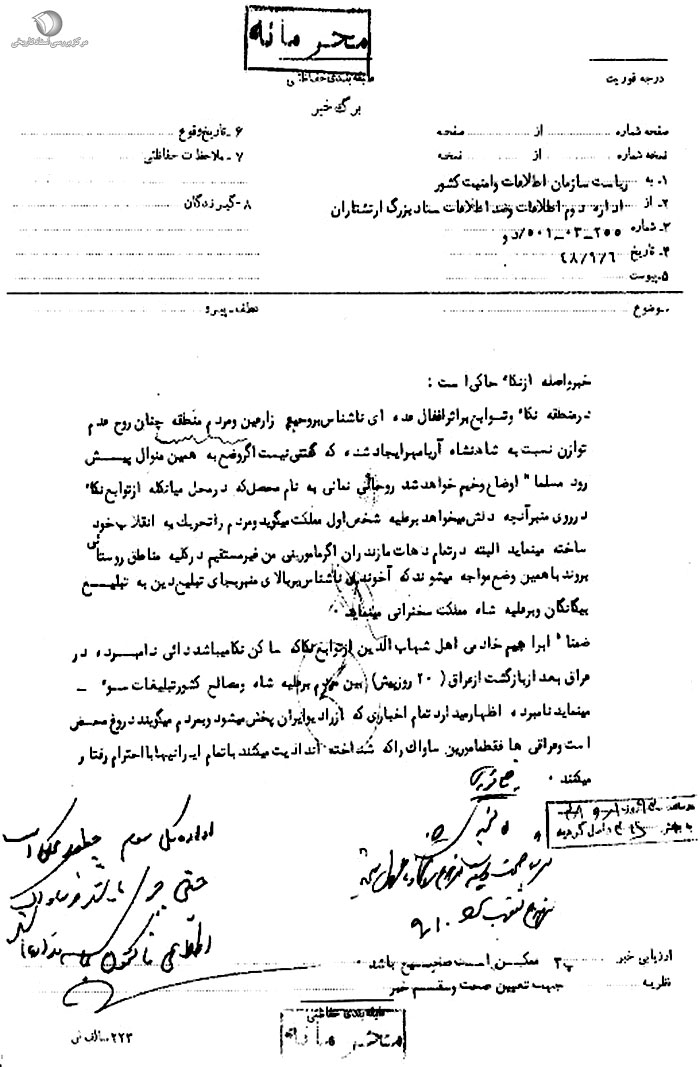 مرکز بررسی اسناد تاریخی
محرمانه
طبقه بندی حفاظتی
درجه فوریت
برگ خبر
صفحه شماره از صفحه
۶ـ تاریخ وقوع
نسخه شماره از نسخه
۷ـ ملاحظات حفاظتی
۱ـ به ریاست سازمان اطلاعات و امنیت کشور
۲ـ از اداره دوم اطلاعات وضد اطلاعات ستاد بزرگ ارتشتاران
۸ـ گیرندگان
۳ـ شماره
۴ـ تاریخ ۴۸/۹/۶
۵ـ پیوست
موضوع
عطف ـ پیرو
خبر واصله از نکاء حاکی است :
در منطقه نکاء وتوابع بر اثر اغفال عده ای ناشناس بروحیه زارعین ومردم منطقه چنان روح عدم
توازن نسبت به شاهنشاه آریامهر ایجاد شده که گفتنی نیست اگر وضع به همین منوال پیش
رود مسلما" اوضاع وخیم خواهد شد روحانی نمائی به نام محصل که در محل میانکله از توابع نکاء
در روی منبر آنچه دلش میخواهد برعلیه شخص اول مملکت میگوید ومردم را تحریک به انقلاب خود
ساخته مینماید البته در تمام دهات مازندران اگر مامورینی من غیر مستقیم در کلیه مناطق روستائی
بروند با همین وضع مواجه میشوند که آخوندی ناشناس بر بالای منبر بجای تبلیغ دین به تبلیغ
بیگانگان وبرعلیه شاه مملکت سخنرانی مینماید ۰
ضمنا" ابراهیم خادمی اهل شهاب الدین از توابع نکا که ساکن نکا میباشد دائی نامبرده در
عراق بعد از بازگشت از عراق ( ۲۰ روز پیش) بین مردم برعلیه شاه ومصالح کشور تبلیغات سوء ـ
مینماید نامبرده اظهار میدارد تمام اخباری که از رادیو ایران پخش میشود وبمردم میگویند دروغ محض
است وعراقی ها فقط مامورین ساواک را که شناخته اند اذیت میکنند با تمام ایرانیها با احترام رفتار
میکنند ۰
اداره کل سوم
ارزیابی خبر ب۳ ممکن است صحیح باشد
نظریه جهت تعیین صحت وسقم خبر
طبقه بندی حفاظتی
محرمانه
۲۲۳ـ الف